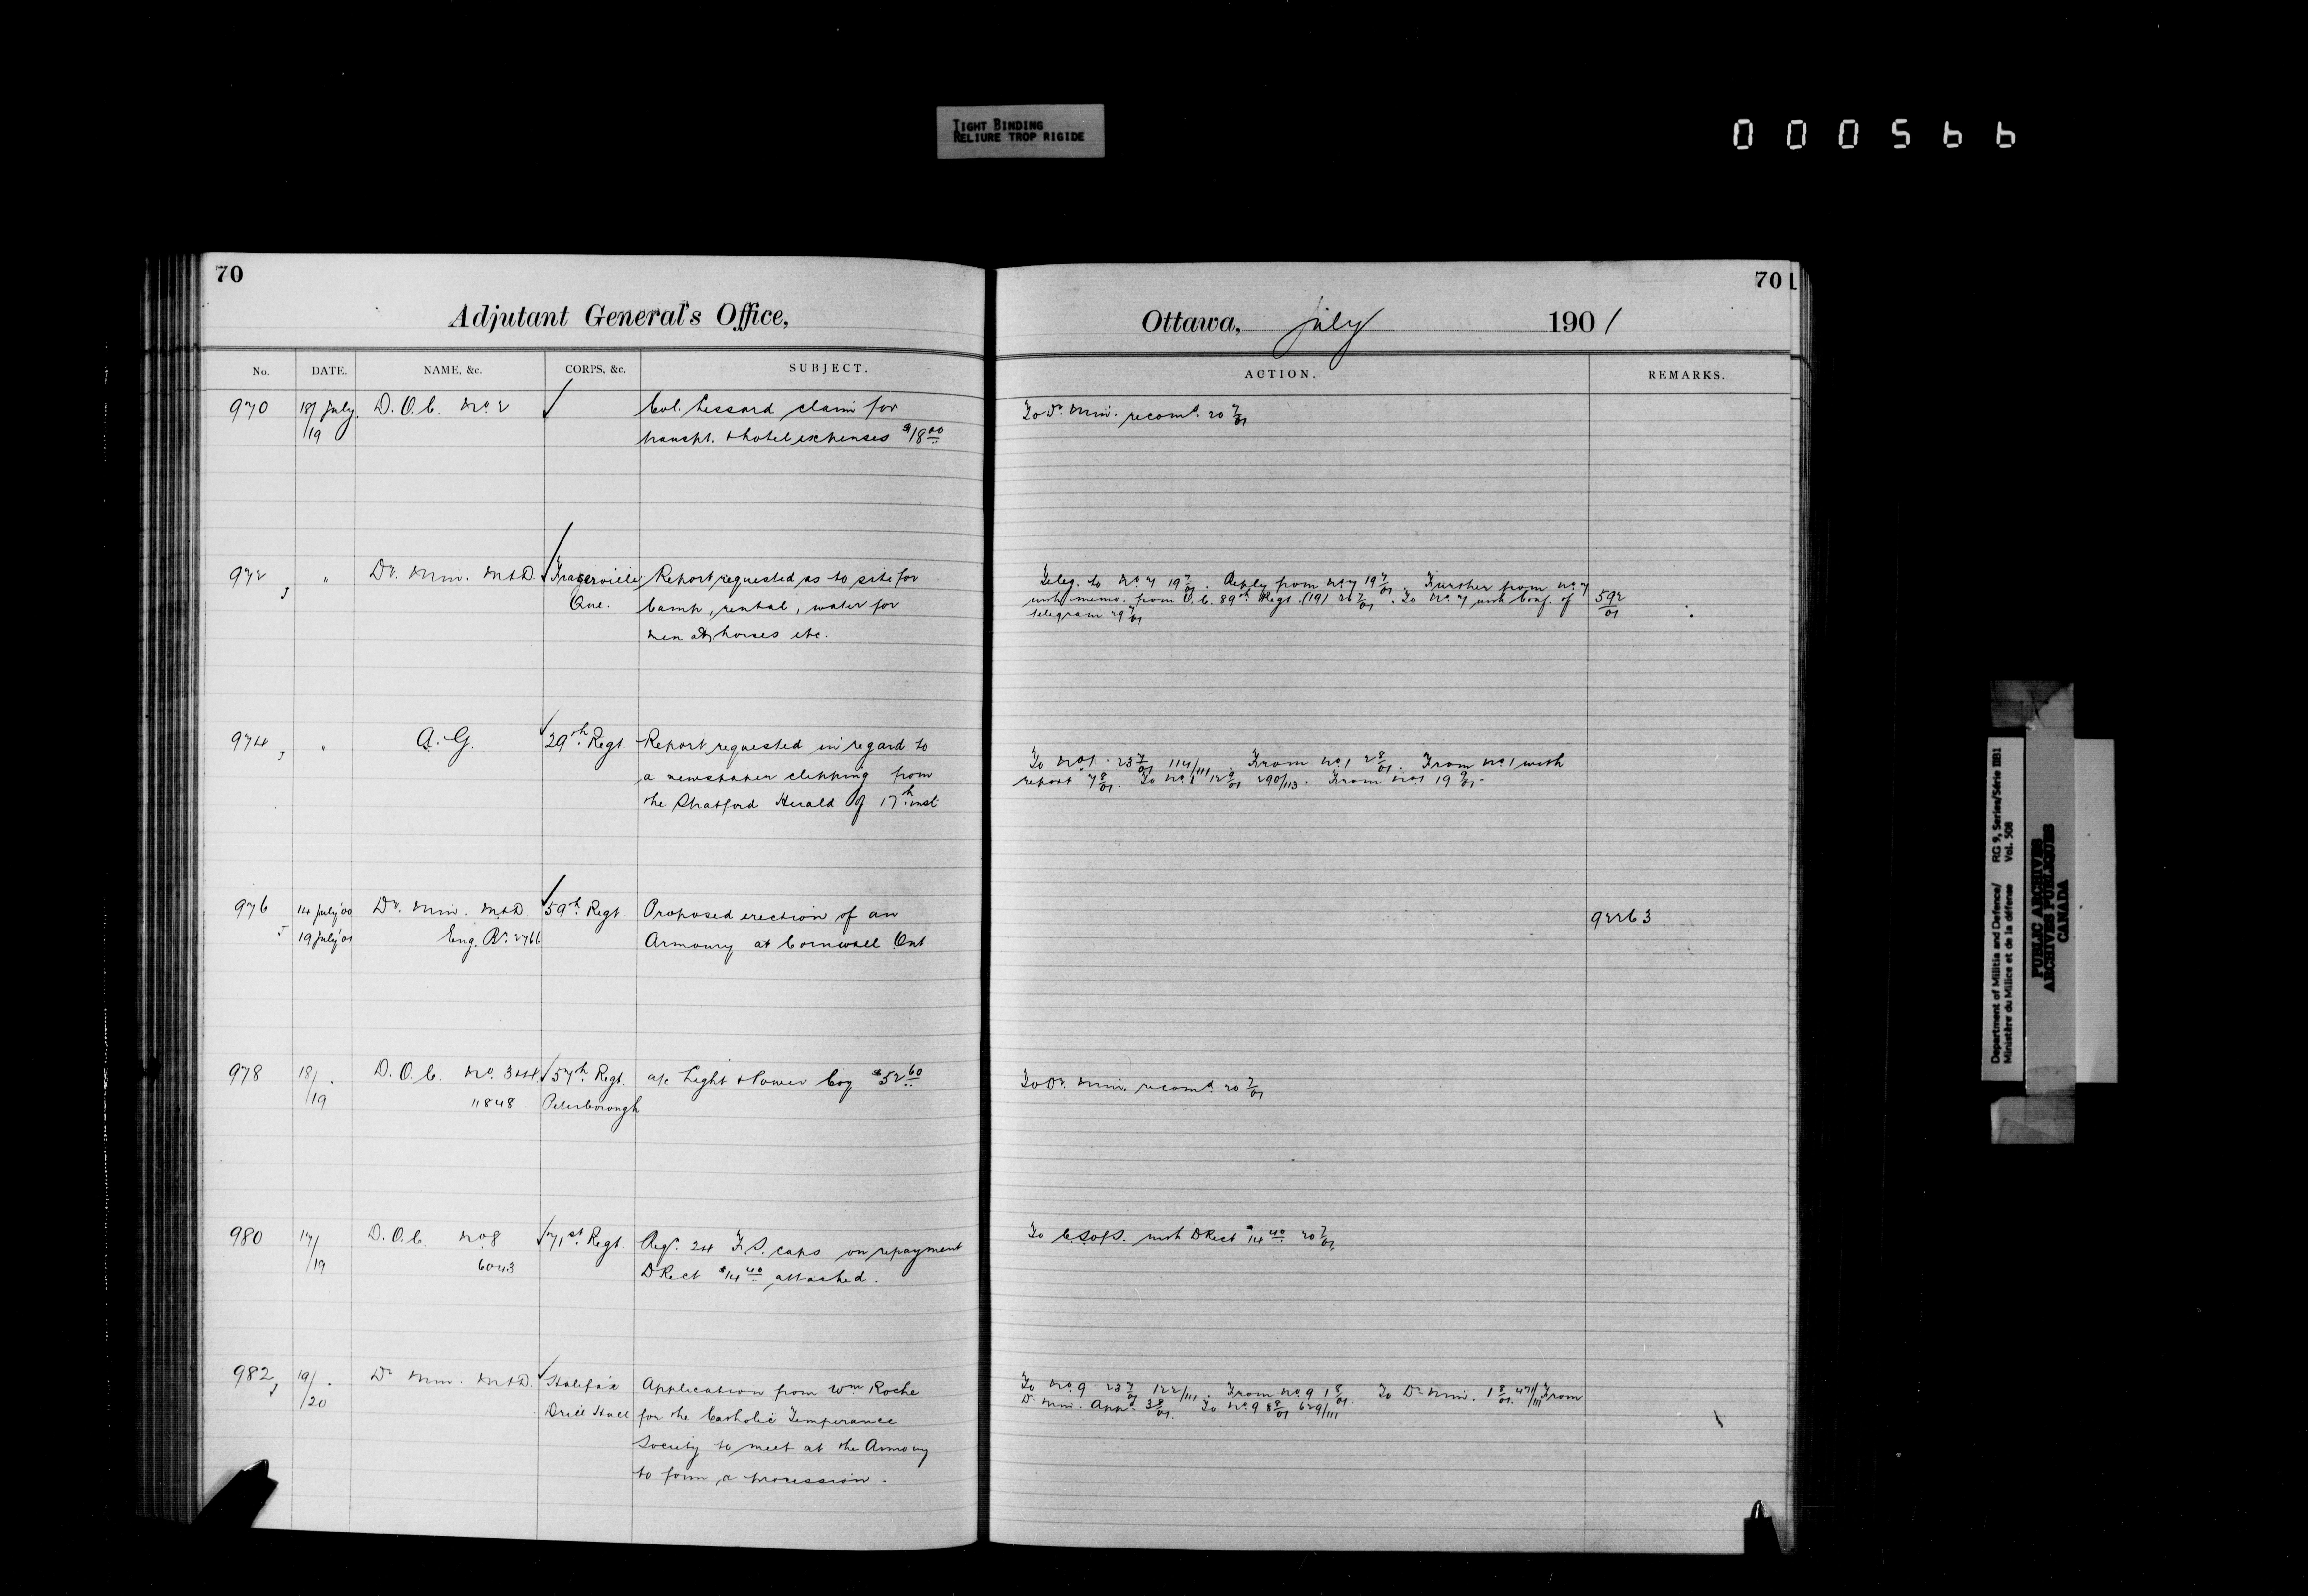 TIGHT BINDING
RELIURE TROP RIGIDE
000566
70
Adjutant General's Office,
No. DATE. NAME, &c. CORPS, &c. SUBJECT.
970 18/ July D.O.C. No. 2 Col. Lessard claim for
/19 transpt. & hotel expenses $18.00
972 " Dy. Min. M&D. Fraserville Report requested as to site for
J Que. Camp, rental, water for
men & horses etc.
974 " A.G. 29th Regt. Report requested in regard to
J a newspaper clipping from
the Stratford Herald of 17th inst.
976 14 July '00 Dy. Min. M&D 59th Regt. Proposed erection of an
J 19 July '01 Eng. Br. 2766 Armoury at Cornwall Ont
978 18/ D.O.C. No. 3&4. 57th Regt. a/c Light & Power Coy $52.60
/19 11848 Peterborough
980 17/ D.O.C. No 8 71st Regt. Reqs. 24 F.S. caps on repayment
/19 6043 DRect $14.40 attached.
982 19/ Dy Min. M&D. Halifax Application from Wm Roche
J /20 Drill Hall for the Catholic Temperance
Society to meet at the Armoury
to form a procession.
70
Ottawa, July 1901
ACTION. REMARKS.
To Dy. Min. recomd. 20 7/01
Teleg. to No. 7 19 7/01. Reply from No. 7 19 7/01. Further from No. 7
with memo. from O.C. 89th Regt. (19) 26 7/01. To No. 7 with Conf. of 592/01
telegram 29 7/01
To No 1. 23 7/01 114/111. From No. 1 2 8/01. From No. 1 with
report 7 8/01. To No 1 12 9/01 290/113. From No 1 19 9/01.
92263
To Dy. Min. recomd. 20 7/01
To C.S. of S. with DRect $14.40 20 7/01.
To No. 9 23 7/01 122/111. From No. 9 1 8/01. To Dy. Min. 1 8/01. 471/111 From
Dy. Min. Appd 3 8/01. To No. 9 8 8/01 629/111
Department of Militia and Defence/ RG 9, Series/Série IIB1
Ministère du Milice et de la défense Vol. 508
PUBLIC ARCHIVES
ARCHIVES PUBLIQUES
CANADA